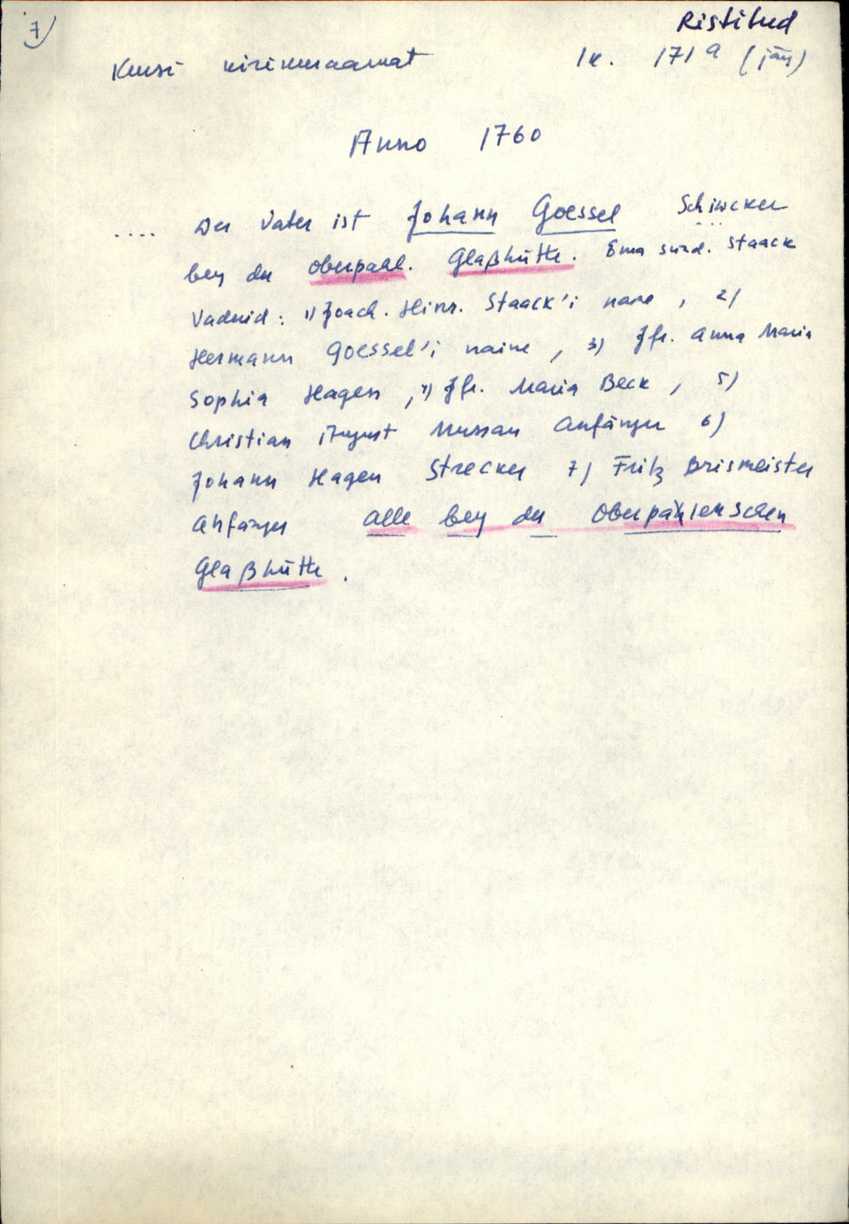 7)
Ristitud
Kursi kirikuraamat lk. 171a (järg)
Anno 1760
.... Der Vater ist Johann Goessel
bey der Oberpahl. Glaßhütte. Ema sünd. Staack
Vadrid: 1) Joach. Hinr. Staack'i naine, 2)
Hermann Goessel'i naine, 3) Jfr. Anna Maria
Sophia Hagen, 4) Jfr. Maria Beck, 5)
Christian August Anfänger 6)
Johann Hagen Strecker 7) Fritz Brismeister
Anfänger alle bey der Oberpahlenschen
Glaßhütte.